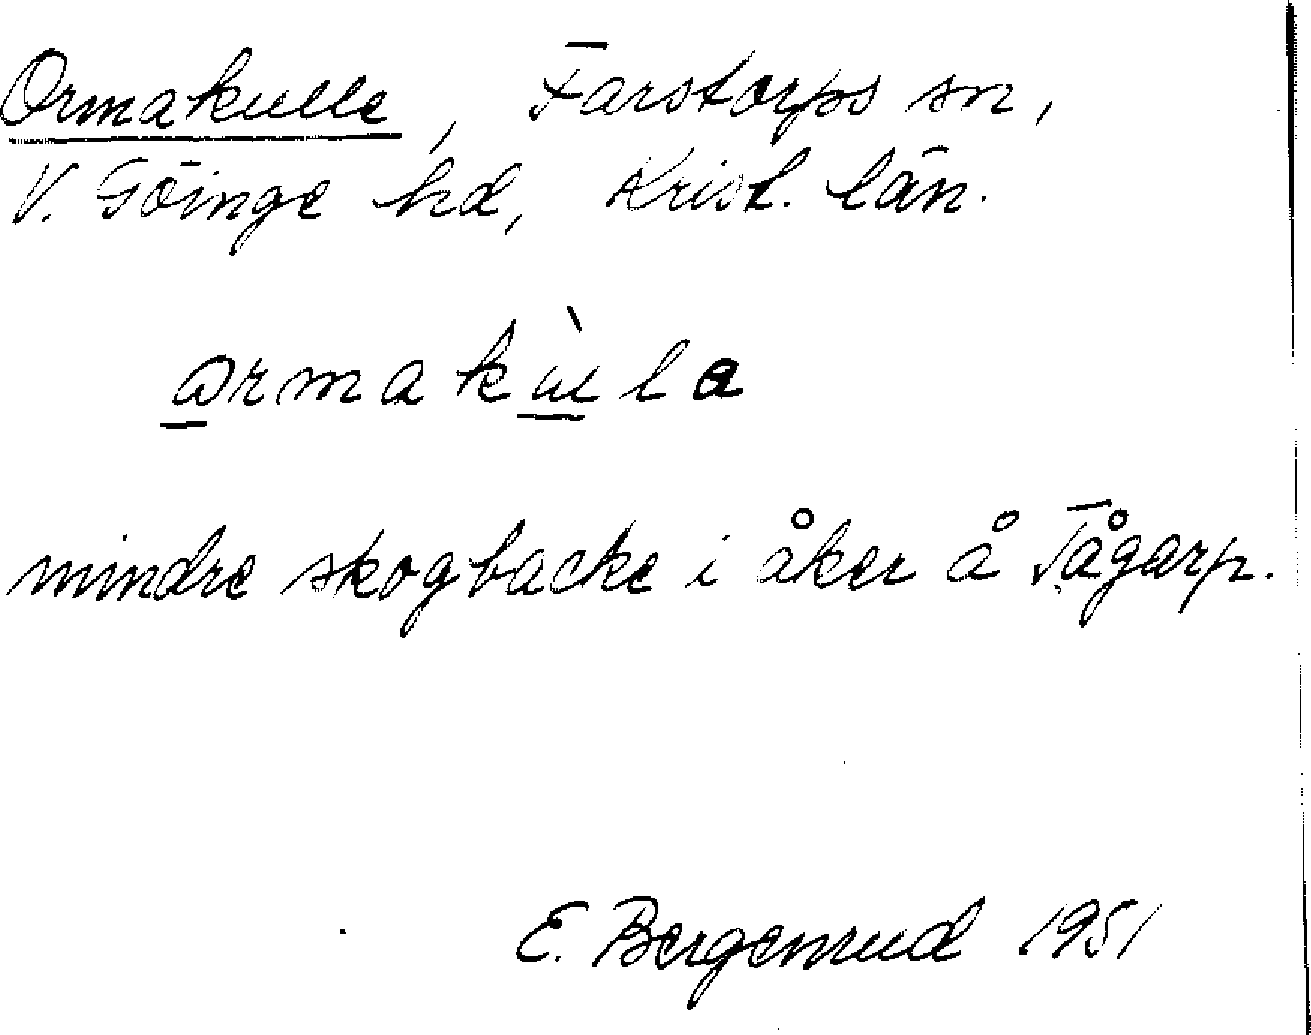 Ormakulle, Farstorps sn,
V. Göinge hd, Krist. län.
ormakùla
mindre skogbacke i åker å Tågarp.
E. Bergenrud 1951